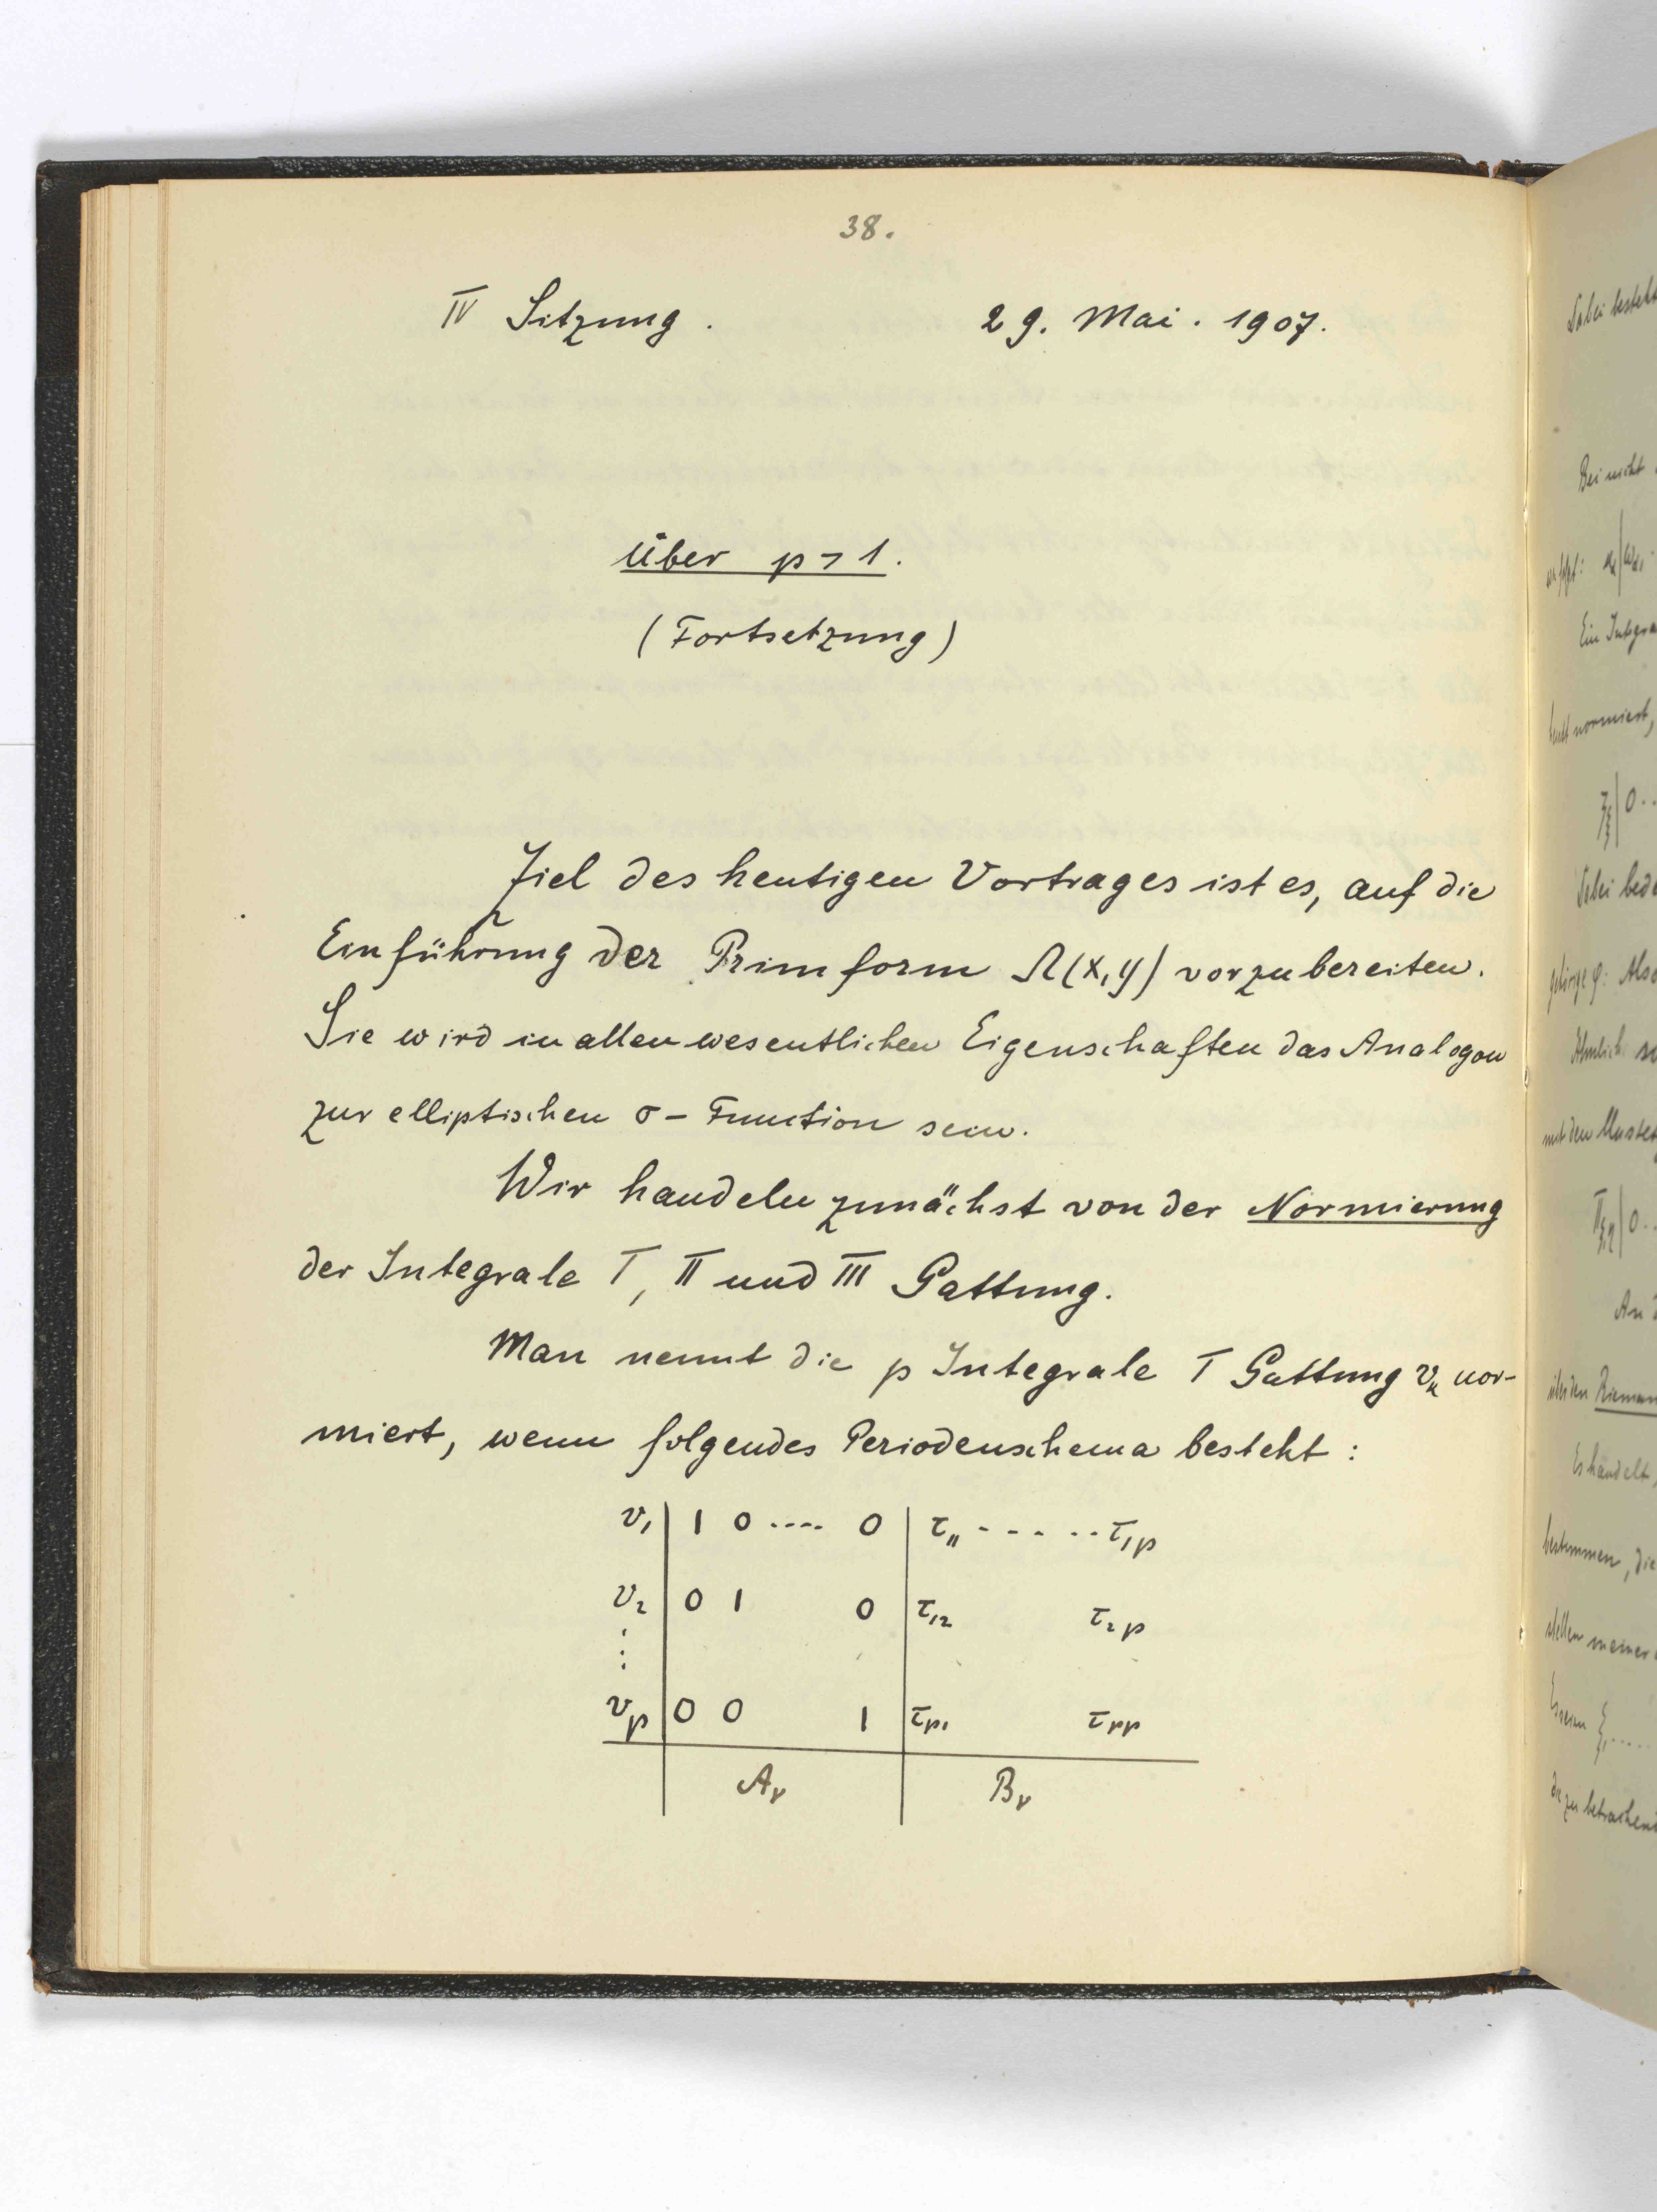 38.
IV Sitzung. 29. Mai. 1907.
Über p > 1.
(Fortsetzung)
Ziel des heutigen Vortrages ist es, auf die
Einführung der Primform Ω(x,y) vorzubereiten.
Sie wird in allen wesentlichen Eigenschaften das Analogon
zur elliptischen σ-Function sein.
Wir handeln zunächst von der Normierung
der Integrale I, II und III Gattung.
Man nennt die p Integrale I Gattung vₖ nor-
miert, wenn folgendes Periodenschema besteht:
v₁ | 1 0 .... 0 | τ₁₁ - - - - - τ₁ₚ
v₂ | 0 1 0 | τ₁₂ τ₂ₚ
⋮
vₚ | 0 0 1 | τₚ₁ τₚₚ
Aᵥ | Bᵥ
Dabei besteht
Bei nicht
Ein Integra
normiert,
0..
Dabei bede
Also
Ähnlich
mit den Muster
0..
An
über den Rieman
Es handelt,
bestimmen, die
stellen meiner